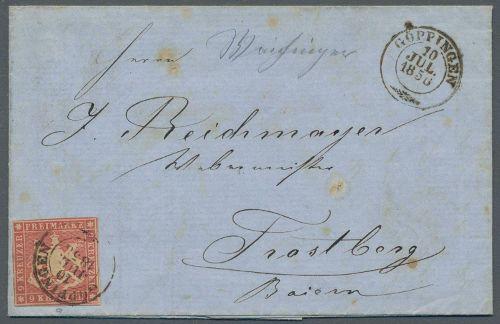 Herrn
GÖPPINGEN
10
JUL.
1858
J. Reichmayer
Webermeister
Trostberg
Baiern
FREIMARKE
9 KREUZER
GÖPPINGEN
10
JUL.